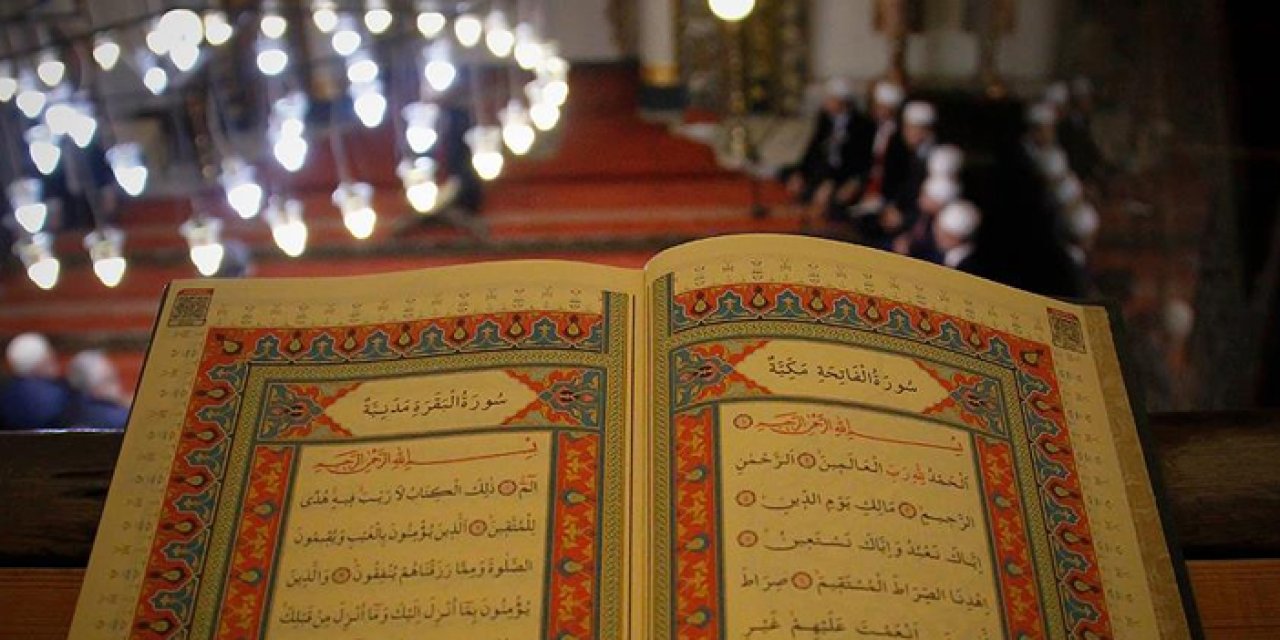 سُورَةُ الْفَاتِحَةِ مَكِّيَّةٌ
بِسْمِ اللّٰهِ الرَّحْمٰنِ الرَّحِيمِ
اَلْحَمْدُ لِلّٰهِ رَبِّ الْعَالَمِينَۙ ﴿١﴾ اَلرَّحْمٰنِ
الرَّحِيمِۙ ﴿٢﴾ مَالِكِ يَوْمِ الدِّينِۜ ﴿٣﴾
اِيَّاكَ نَعْبُدُ وَاِيَّاكَ نَسْتَعِينُۜ ﴿٤﴾
اِهْدِنَا الصِّرَاطَ الْمُسْتَقِيمَۙ ﴿٥﴾ صِرَاطَ
اَنْعَمْتَ عَلَيْهِمْ غَيْرِ
سُورَةُ الْبَقَرَةِ مَدَنِيَّةٌ
بِسْمِ اللّٰهِ الرَّحْمٰنِ الرَّحِيمِ
الٓمٓۚ ﴿١﴾ ذٰلِكَ الْكِتَابُ لَا رَيْبَۚ فِيهِۚ هُدًى
لِلْمُتَّقِينَۙ ﴿٢﴾ اَلَّذِينَ يُؤْمِنُونَ بِالْغَيْبِ وَيُقِيمُونَ
الصَّلٰوةَ وَمِمَّا رَزَقْنَاهُمْ يُنْفِقُونَۙ ﴿٣﴾ وَالَّذِينَ
يُؤْمِنُونَ بِمَٓا اُنْزِلَ اِلَيْكَ وَمَٓا اُنْزِلَ مِنْ قَبْلِكَۚ